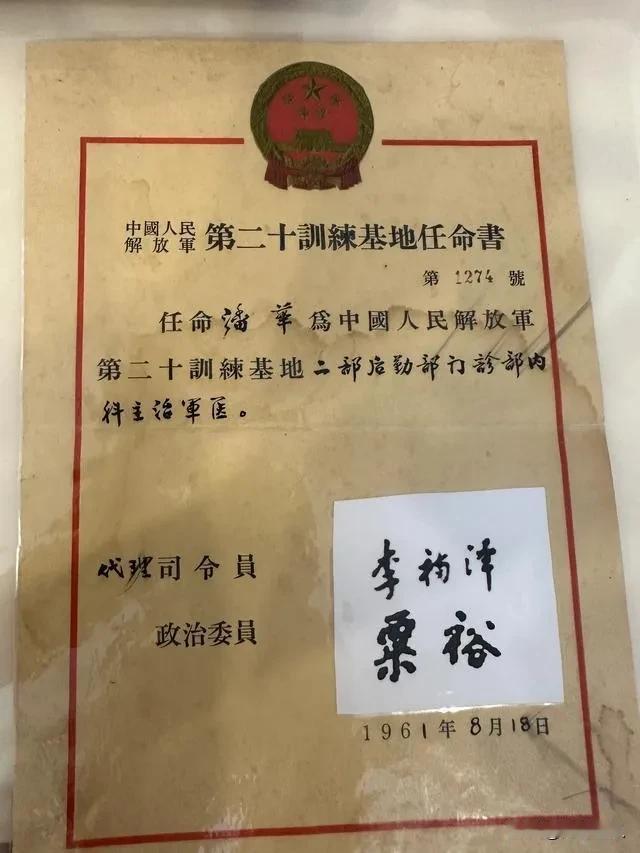 中國人民
解放軍 第二十訓練基地任命書
第 1274 號
任命 潘華 爲中國人民解放軍
第二十訓練基地二部后勤部门診部内
科主治軍医。
代理司令員
李福泽
政治委員
栗裕
1961年8月18日